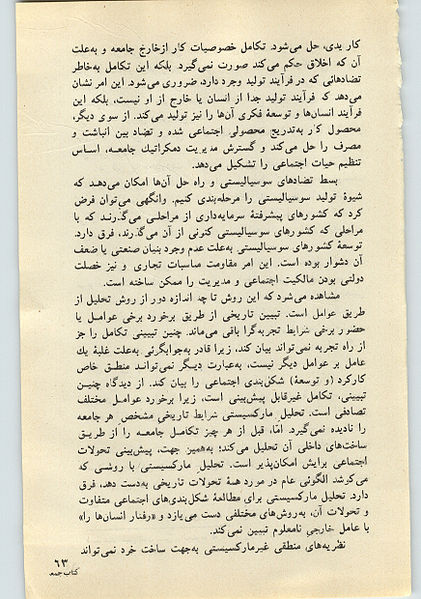 کار یدی، حل می‌شود. تکامل خصوصیات کار از خارج جامعه و به‌علت
آن که اخلاق حکم می‌کند صورت نمی‌گیرد. بلکه این تکامل به‌خاطر
تضادهائی که در فرآیند تولید وجود دارد، ضروری می‌شود. این امر نشان
می‌دهد که فرآیند تولید جدا از انسان یا خارج از او نیست، بلکه این
فرآیند انسان‌ها و توسعهٔ فکری آن‌ها را نیز تولید می‌کند. از سوی دیگر،
محصول کار به‌تدریج محصولی اجتماعی شده و تضاد بین انباشت و
مصرف را حل می‌کند و گسترش مدیریت دمکراتیك جامعه، اساس
تنظیم حیات اجتماعی را تشکیل می‌دهد.
بسط تضادهای سوسیالیستی و راه حل آن‌ها امکان می‌دهد که
شیوهٔ تولید سوسیالیستی را مرحله‌بندی کنیم. وانگهی می‌توان فرض
کرد که کشورهای پیشرفتهٔ سرمایه‌داری از مراحلی می‌گذرند که با
مراحلی که کشورهای سوسیالیستی کنونی از آن می‌گذرند، فرق دارد.
توسعهٔ کشورهای سوسیالیستی به‌علت عدم وجود بنیان صنعتی یا ضعف
آن دشوار بوده است. این امر مقاومت مناسبات تجاری و نیز خصلت
دولتی بودن مالکیت اجتماعی و مدیریت را ممکن ساخته است.
مشاهده می‌شود که این روش تا چه اندازه دور از روش تحلیل از
طریق عوامل است. تبیین تاریخی از طریق برخورد برخی عوامل یا
حضور برخی شرایط تجربه‌گرا باقی می‌ماند. چنین تبیینی تکامل را جز
از راه تجربه نمی‌تواند بیان کند، زیرا قادر به‌جوابگوئی به‌علت غلبهٔ یك
عامل بر عوامل دیگر نیست، به‌عبارت دیگر نمی‌تواند منطق خاص
کارکرد (و توسعهٔ) شکل‌بندی اجتماعی را بیان کند. از دیدگاه چنین
تبیینی، تکامل غیرقابل پیش‌بینی است، زیرا برخورد عوامل مختلف
تصادفی است. تحلیل مارکسیستی شرایط تاریخی مشخص هر جامعه
را نادیده نمی‌گیرد. امّا، قبل از هر چیز تکامل جامعه را از طریق
ساخت‌های داخلی آن تحلیل می‌کند؛ به‌همین جهت، پیش‌بینی تحولات
اجتماعی برایش امکان‌پذیر است. تحلیل مارکسیستی با روشی که
می‌کوشد الگوئی عام در مورد همهٔ تحولات تاریخی به‌دست دهد، فرق
دارد. تحلیل مارکسیستی برای مطالعهٔ شکل‌بندی‌های اجتماعی متفاوت
و تحولات آن، به‌روش‌های مختلفی دست می‌یازد و «رفتار انسان‌ها را»
با عامل خارجیِ نامعلوم تبیین نمی‌کند.
نظریه‌های منطقی غیرمارکسیستی به‌جهت ساخت خود نمی‌تواند
۶۳
کتاب جمعه